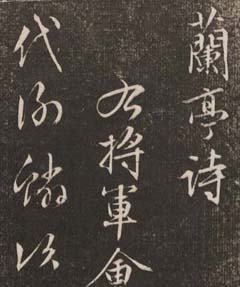 蘭亭詩
右將軍會
代謝鱗次